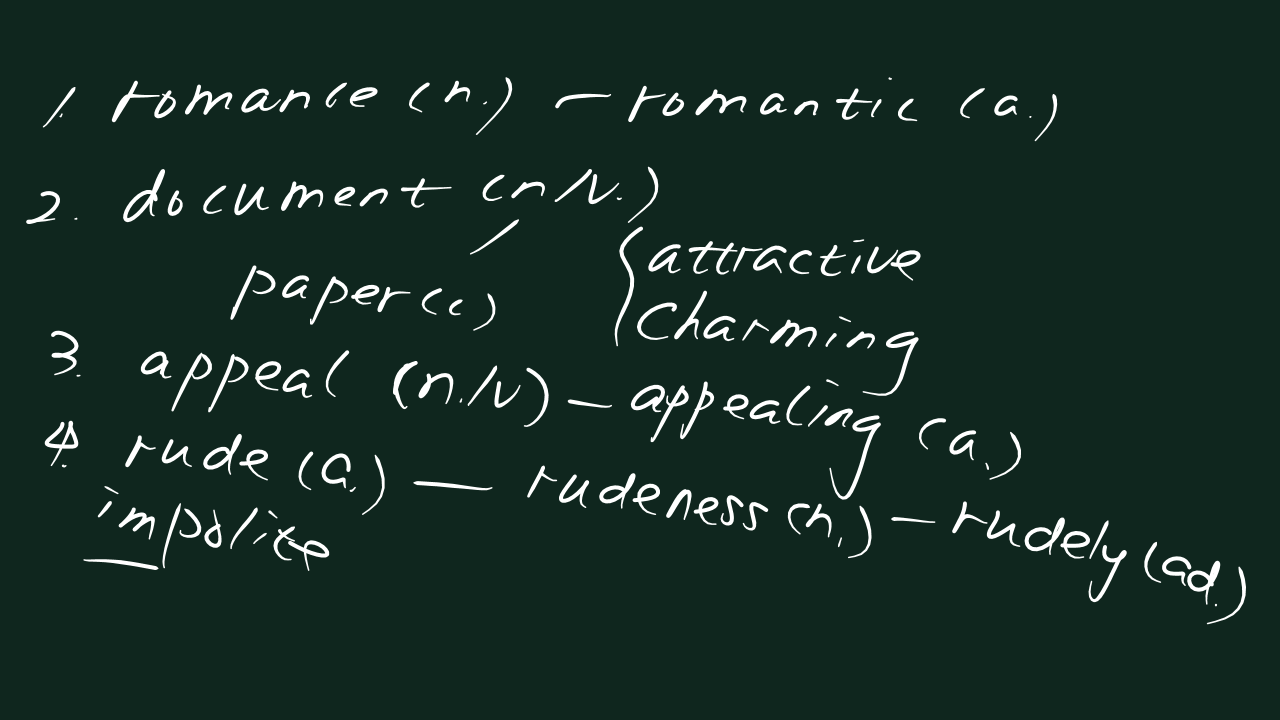 1. romance (n.) - romantic (a.)
2. document (n/v.)
paper (c)
attractive
charming
3. appeal (n./v) - appealing (a.)
4. rude (a.) - rudeness (n.) - rudely (ad.)
impolite